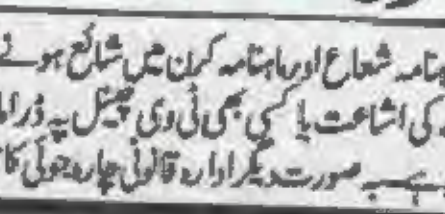 ہنامہ شعاع اور ماہنامہ کرن میں شائع ہونے
کی اشاعت یا کسی بھی ٹی وی چینل پہ ڈراما
ہے۔ بہ صورت دیگر ادارہ قانونی چارہ جوئی کا